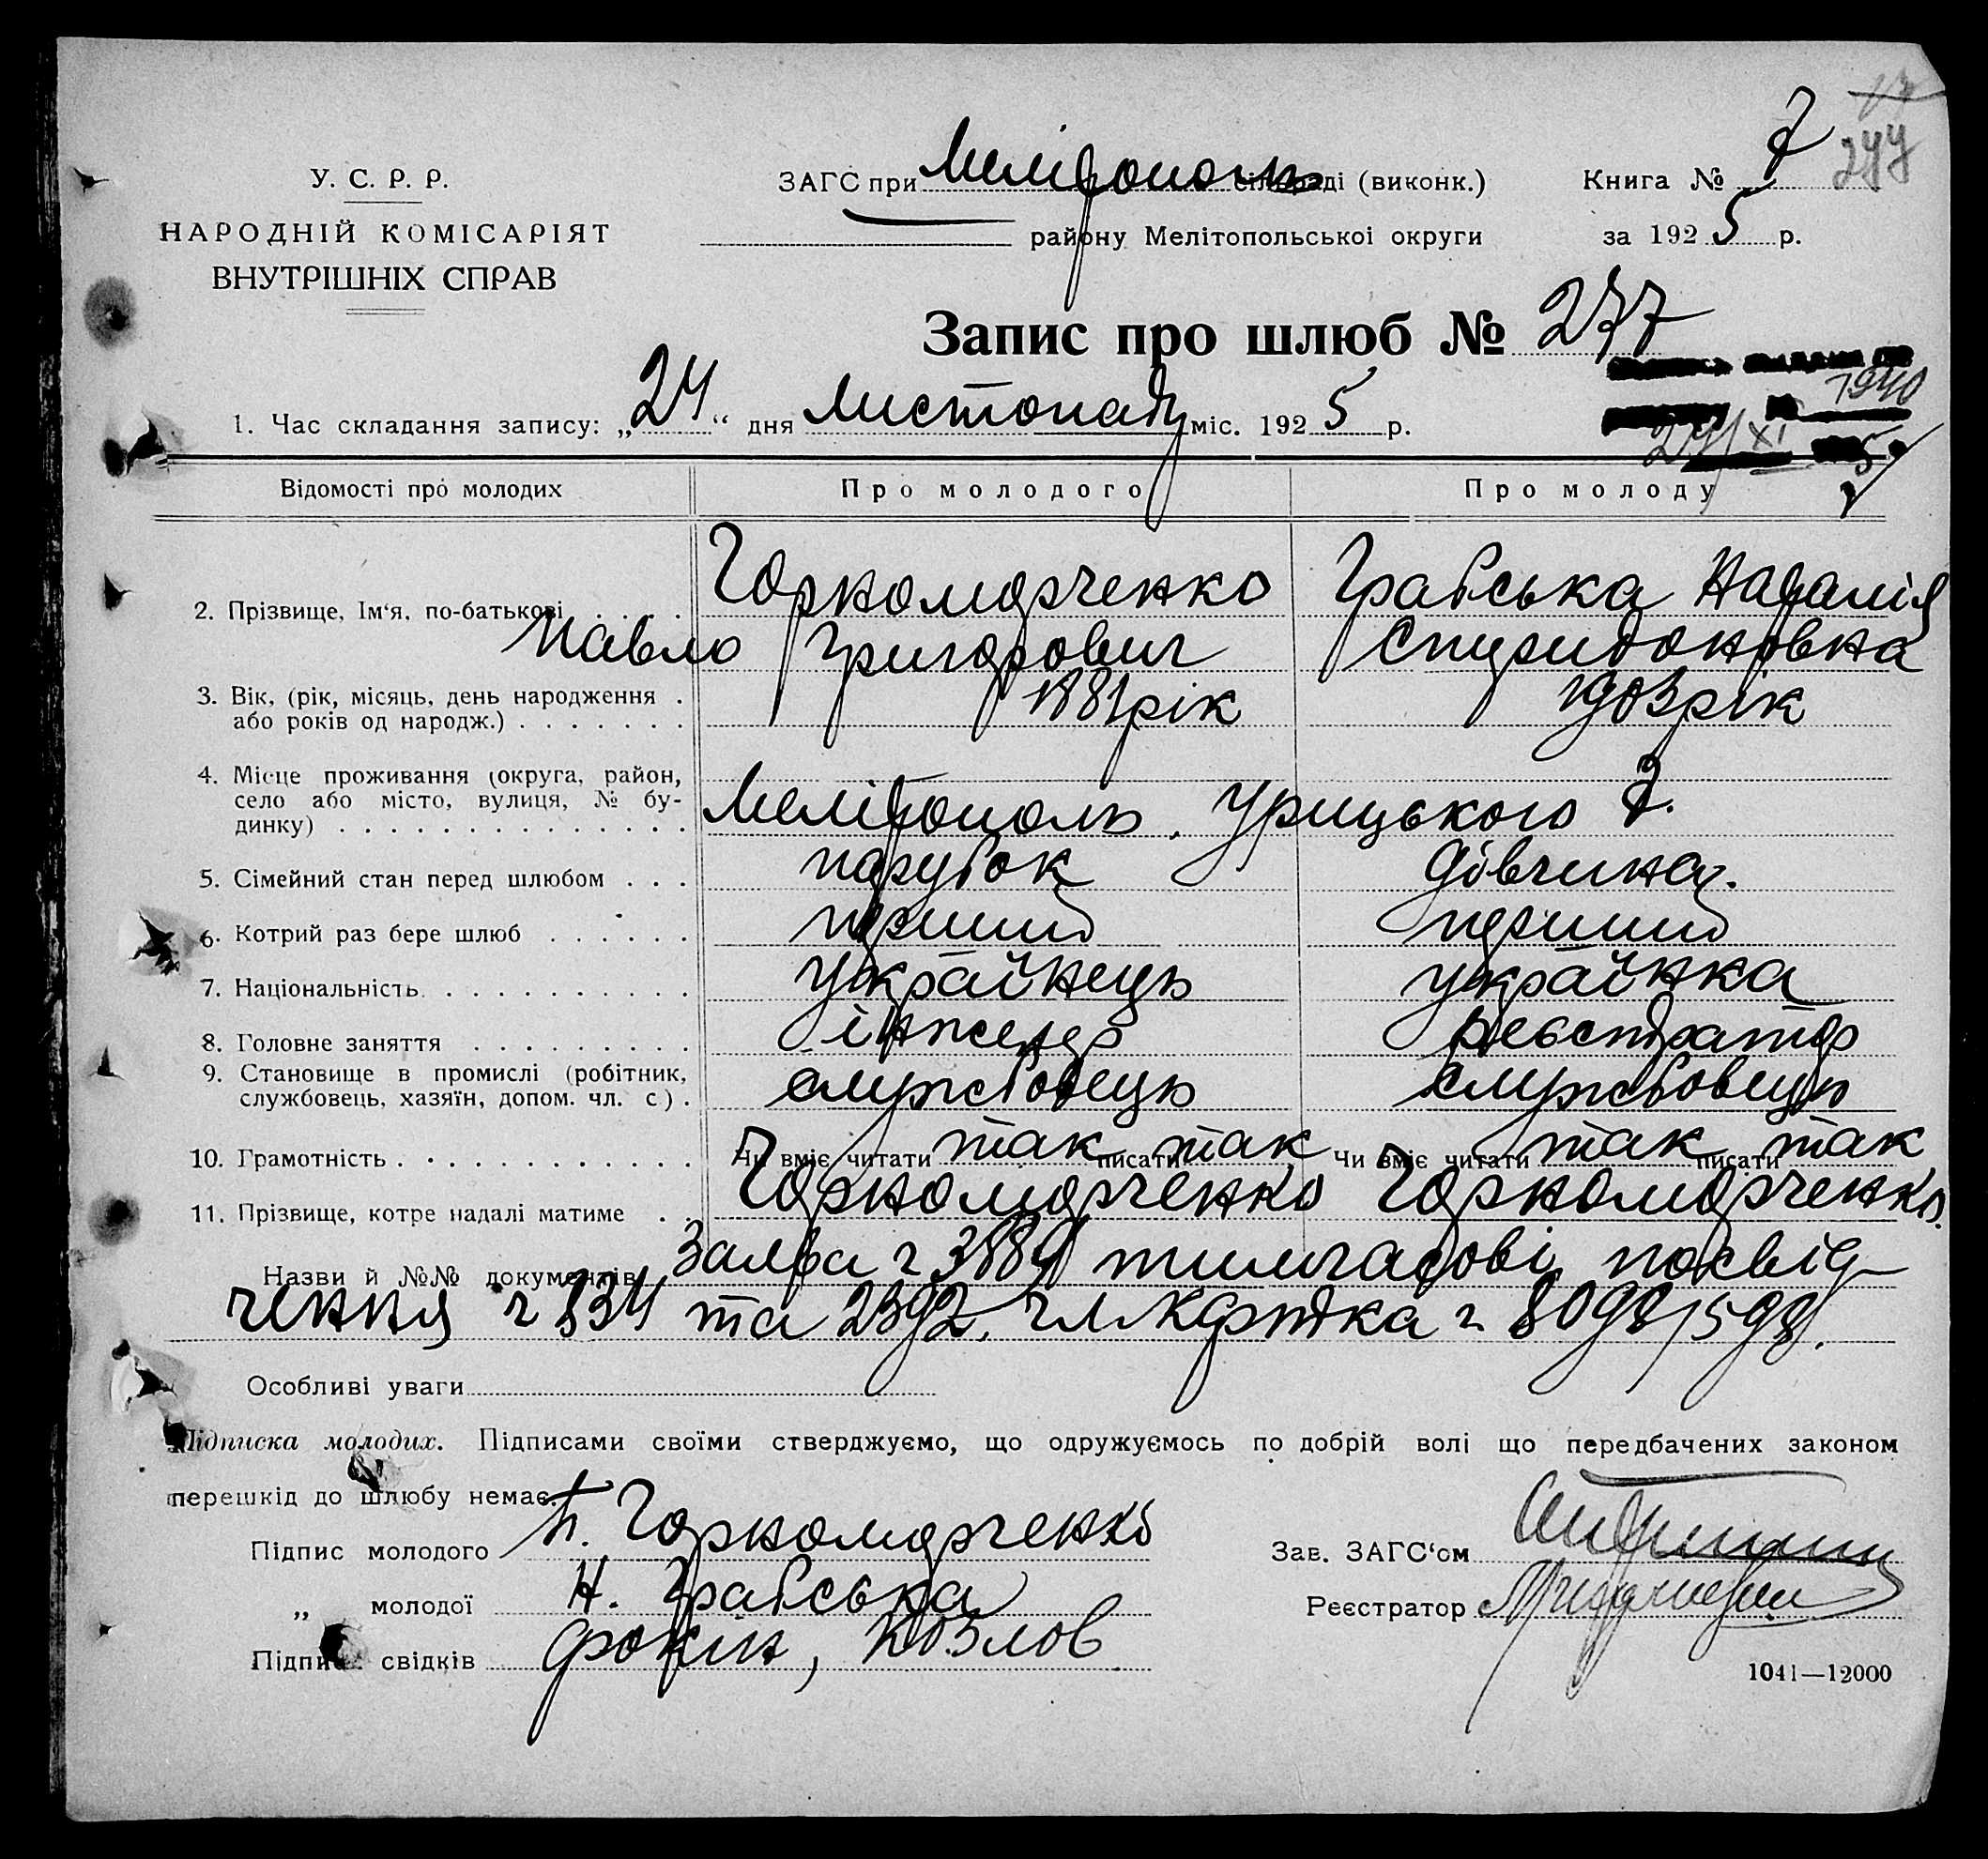 У. С. Р. Р.
НАРОДНІЙ КОМІСАРІЯТ
ВНУТРІШНІХ СПРАВ
ЗАГС при Мелітополь сільраді (виконк.)
району Мелітопольської округи
Книга № 7
277
за 1925 р.
Запис про шлюб № 277
1. Час складання запису: „24“ дня листопада міс. 1925 р.
1940
24/XI 5
Відомості про молодих Про молодого Про молоду
2. Прізвище, Ім‘я, по-батькові . . . . Чорноморченко Грабська Наталія
Павло Григорович Спиридоновна
3. Вік, (рік, місяць, день народження . 1881 рік 1903 рік
або років од народж.) . . . . . . .
4. Місце проживання (округа, район,
село або місто, вулиця, № бу-
динку) . . . . . . . . . . . . . . Мелітополь. Урицького 7.
5. Сімейний стан перед шлюбом . . . парубок дівчина.
6. Котрий раз бере шлюб . . . . . . перший перший
7. Національність . . . . . . . . . . . українець українка
8. Головне заняття . . . . . . . . . інженер реєстратор
9. Становище в промислі (робітник,
службовець, хазяїн, допом. чл. с) . службовець службовець
10. Грамотність . . . . . . . . . . . . Чи вміє читати так писати так Чи вміє читати так писати так
11. Прізвище, котре надалі матиме . . Чорноморченко Чорноморченко.
Назви й №№ документів Заява ч 3889 тимчасові посвід-
чення ч 834 та 2392, чл картка ч 8098/598.
Особливі уваги
Підписка молодих. Підписами своїми стверджуємо, що одружуємось по добрій волі що передбачених законом
перешкід до шлюбу немає.
Підпис молодого П. Чорноморченко
Зав. ЗАГС‘ом
„ молодої Н. Грабська
Реєстратор
Підпис свідків Фокін, Козлов
1041—12000